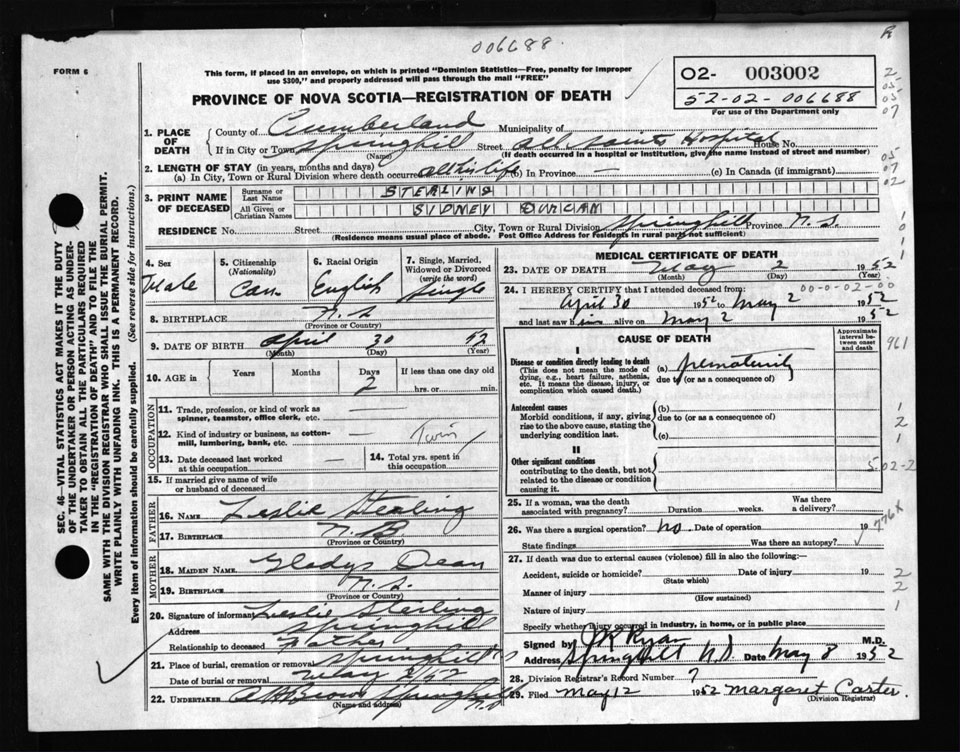 006688.
R
FORM 6
This form, if placed in an envelope, on which is printed "Dominion Statistics—Free, penalty for improper use $300," and properly addressed will pass through the mail "FREE"
02- 003002
52-02-006688
For use of the Department only
PROVINCE OF NOVA SCOTIA—REGISTRATION OF DEATH
1. PLACE OF DEATH
County of Cumberland Municipality of
If in City or Town Springhill Street All Saints Hospital House No.
(Name) (If death occurred in a hospital or institution, give the name instead of street and number)
2. LENGTH OF STAY (in years, months and days)
(a) In City, Town or Rural Division where death occurred all his life (b) In Province — (c) In Canada (if immigrant)
3. PRINT NAME OF DECEASED
Surname or Last Name STERLING
All Given or Christian Names SIDNEY DUNCAN
RESIDENCE No. Street City, Town or Rural Division Springhill Province N.S.
(Residence means usual place of abode. Post Office Address for Residents in rural parts not sufficient)
4. Sex Male
5. Citizenship (Nationality) Can
6. Racial Origin English
7. Single, Married, Widowed or Divorced (write the word) Single
8. BIRTHPLACE N.S.
(Province or Country)
9. DATE OF BIRTH April 30 52
(Month) (Day) (Year)
10. AGE in Years Months Days 2 If less than one day old hrs. or min.
OCCUPATION
11. Trade, profession, or kind of work as spinner, teamster, office clerk, etc. —
12. Kind of industry or business, as cotton-mill, lumbering, bank, etc. — Twin
13. Date deceased last worked at this occupation —
14. Total yrs. spent in this occupation
15. If married give name of wife or husband of deceased
FATHER
16. NAME Leslie Sterling
17. BIRTHPLACE N.B.
(Province or Country)
MOTHER
18. MAIDEN NAME Gladys Dean
19. BIRTHPLACE N.S.
(Province or Country)
20. Signature of informant Leslie Sterling
Address Springhill
Relationship to deceased Father
21. Place of burial, cremation or removal Springhill N.S.
Date of burial or removal May 2/52
22. UNDERTAKER A H Brown Springhill N.S.
(Name and address)
MEDICAL CERTIFICATE OF DEATH
23. DATE OF DEATH May 2 1952
(Month) (Day) (Year)
24. I HEREBY CERTIFY that I attended deceased from: 00-0-02-00
April 30 1952 to May 2 1952
and last saw him alive on May 2 1952
CAUSE OF DEATH
Approximate interval between onset and death
I
Disease or condition directly leading to death
(This does not mean the mode of dying, e.g., heart failure, asthenia, etc. It means the disease, injury, or complication which caused death.)
(a) prematurity
due to (or as a consequence of)
Antecedent causes
Morbid conditions, if any, giving rise to the above cause, stating the underlying condition last.
(b)
due to (or as a consequence of)
(c)
II
Other significant conditions
contributing to the death, but not related to the disease or condition causing it.
5-02-2
25. If a woman, was the death associated with pregnancy? Duration weeks. Was there a delivery?
26. Was there a surgical operation? no. Date of operation 19
State findings Was there an autopsy?
27. If death was due to external causes (violence) fill in also the following:—
Accident, suicide or homicide? Date of injury 19
(State which)
Manner of injury
(How sustained)
Nature of injury
Specify whether injury occurred in industry, in home, or in public place
Signed by JR Ryan M.D.
Address Springhill N.S. Date May 8 1952
28. Division Registrar's Record Number 7
29. Filed May 12 1952 Margaret Carter.
(Division Registrar)
SEC. 46—VITAL STATISTICS ACT MAKES IT THE DUTY OF THE UNDERTAKER OR PERSON ACTING AS UNDERTAKER TO OBTAIN ALL THE PARTICULARS REQUIRED IN THE "REGISTRATION OF DEATH" AND TO FILE THE SAME WITH THE DIVISION REGISTRAR WHO SHALL ISSUE THE BURIAL PERMIT.
WRITE PLAINLY WITH UNFADING INK. THIS IS A PERMANENT RECORD.
Every item of information should be carefully supplied. (See reverse side for instructions.)
2
05
05
07
05
07
02
1
0
1
1
961
1
2
1
776X
2
2
1